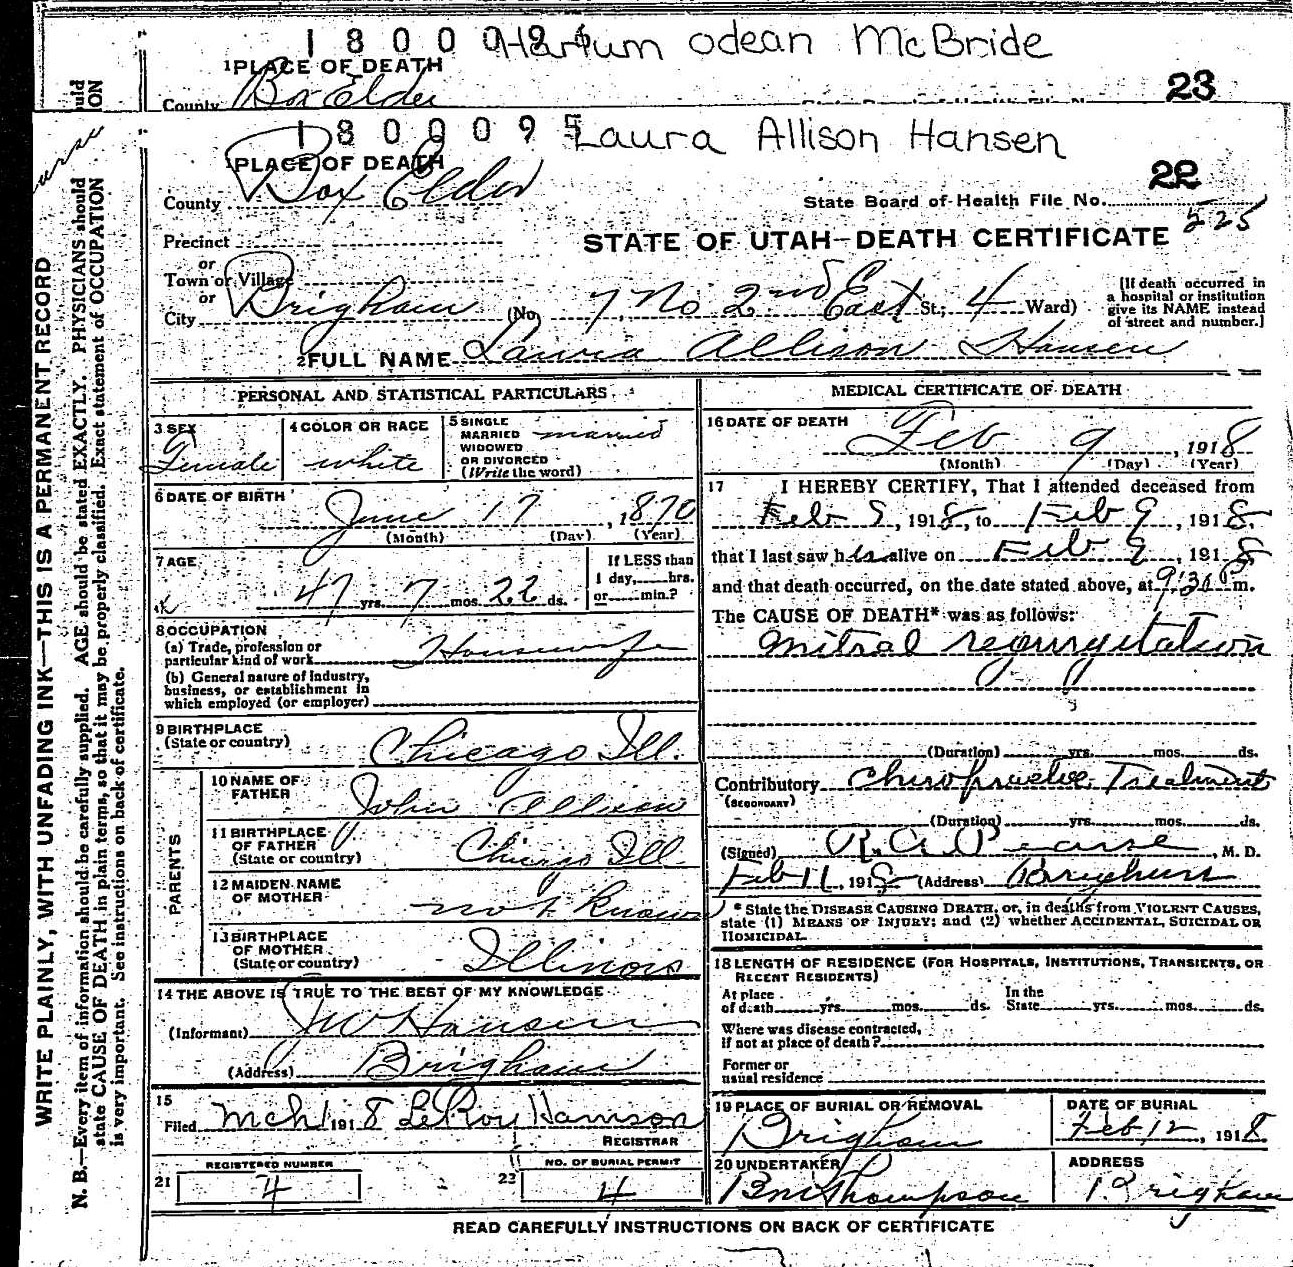 Harlum Odean McBride
1 PLACE OF DEATH
23
County Box Elder
1800095 Laura Allison Hansen
1 PLACE OF DEATH
22
County Box Elder
State Board of Health File No. 525
Precinct
STATE OF UTAH—DEATH CERTIFICATE
or
Town or Village
or
City Brigham (No. 7, No 2nd East St.; 4 Ward)
[If death occurred in
a hospital or institution
give its NAME instead
of street and number.]
2 FULL NAME Laura Allison Hansen
PERSONAL AND STATISTICAL PARTICULARS
3 SEX Female
4 COLOR OR RACE white
5 SINGLE
MARRIED married
WIDOWED
OR DIVORCED
(Write the word)
6 DATE OF BIRTH
June 17, 1870
(Month) (Day) (Year)
7 AGE
47 yrs. 7 mos. 22 ds.
If LESS than
1 day, hrs.
or min.?
8 OCCUPATION
(a) Trade, profession or
particular kind of work Housewife
(b) General nature of industry,
business, or establishment in
which employed (or employer)
9 BIRTHPLACE
(State or country) Chicago Ill.
PARENTS
10 NAME OF
FATHER John Allison
11 BIRTHPLACE
OF FATHER
(State or country) Chicago Ill.
12 MAIDEN NAME
OF MOTHER not known
13 BIRTHPLACE
OF MOTHER
(State or country) Illinois
14 THE ABOVE IS TRUE TO THE BEST OF MY KNOWLEDGE
(Informant) JW Hansen
(Address) Brigham
15
Filed Mch 1 1918 LeRoy Harrison
REGISTRAR
REGISTERED NUMBER
21 4
NO. OF BURIAL PERMIT
22 4
MEDICAL CERTIFICATE OF DEATH
16 DATE OF DEATH
Feb 9, 1918
(Month) (Day) (Year)
17 I HEREBY CERTIFY, That I attended deceased from
Feb 9, 1918, to Feb 9, 1918.
that I last saw her alive on Feb 9, 1918
and that death occurred, on the date stated above, at 9:30 P m.
The CAUSE OF DEATH* was as follows:
Mitral regurgitation
(Duration) yrs. mos. ds.
Contributory Chiropractic Treatment
(SECONDARY)
(Duration) yrs. mos. ds.
(Signed) R. A. Pearse, M. D.
Feb 11, 1918 (Address) Brigham
* State the DISEASE CAUSING DEATH, or, in deaths from VIOLENT CAUSES,
state (1) MEANS OF INJURY; and (2) whether ACCIDENTAL, SUICIDAL OR
HOMICIDAL.
18 LENGTH OF RESIDENCE (FOR HOSPITALS, INSTITUTIONS, TRANSIENTS, OR
RECENT RESIDENTS)
At place
of death yrs. mos. ds.
In the
State yrs. mos. ds.
Where was disease contracted,
if not at place of death?
Former or
usual residence
19 PLACE OF BURIAL OR REMOVAL
Brigham
DATE OF BURIAL
Feb 12, 1918.
20 UNDERTAKER
BM Thompson
ADDRESS
Brigham
READ CAREFULLY INSTRUCTIONS ON BACK OF CERTIFICATE
WRITE PLAINLY, WITH UNFADING INK—THIS IS A PERMANENT RECORD
N. B.—Every item of information should be carefully supplied. AGE should be stated EXACTLY. PHYSICIANS should
state CAUSE OF DEATH in plain terms, so that it may be properly classified. Exact statement of OCCUPATION
is very important. See instructions on back of certificate.